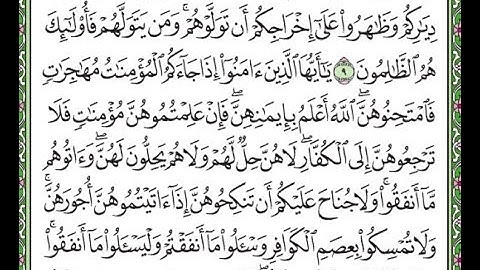 دِيَٰرِكُمْ وَظَٰهَرُوا۟ عَلَىٰٓ إِخْرَاجِكُمْ أَن تَوَلَّوْهُمْ ۚ وَمَن يَتَوَلَّهُمْ فَأُو۟لَٰٓئِكَ
هُمُ ٱلظَّٰلِمُونَ ٩ يَٰٓأَيُّهَا ٱلَّذِينَ ءَامَنُوٓا۟ إِذَا جَآءَكُمُ ٱلْمُؤْمِنَٰتُ مُهَٰجِرَٰتٍ
فَٱمْتَحِنُوهُنَّ ۖ ٱللَّهُ أَعْلَمُ بِإِيمَٰنِهِنَّ ۖ فَإِنْ عَلِمْتُمُوهُنَّ مُؤْمِنَٰتٍ فَلَا
تَرْجِعُوهُنَّ إِلَى ٱلْكُفَّارِ ۖ لَا هُنَّ حِلٌّ لَّهُمْ وَلَا هُمْ يَحِلُّونَ لَهُنَّ ۖ وَءَاتُوهُم
مَّآ أَنفَقُوا۟ ۚ وَلَا جُنَاحَ عَلَيْكُمْ أَن تَنكِحُوهُنَّ إِذَآ ءَاتَيْتُمُوهُنَّ أُجُورَهُنَّ ۚ
وَلَا تُمْسِكُوا۟ بِعِصَمِ ٱلْكَوَافِرِ وَسْـَٔلُوا۟ مَآ أَنفَقْتُمْ وَلْيَسْـَٔلُوا۟ مَآ أَنفَقُوا۟ ۚ